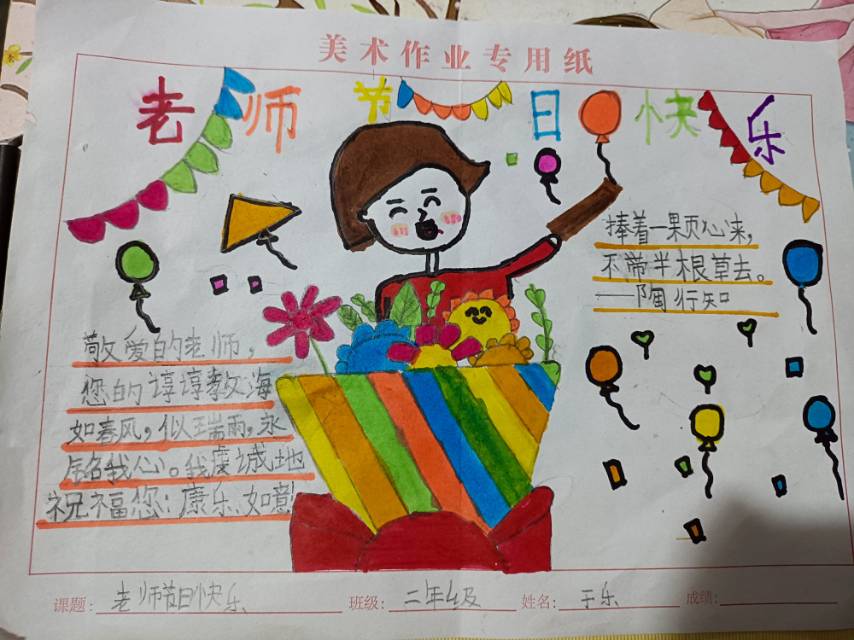 美术作业专用纸
老师节日快乐
捧着一颗心来,
不带半根草去。
——陶行知
敬爱的老师,
您的谆谆教海
如春风,似瑞雨,永
铭我心。我虔诚地
祝福您:康乐如意!
课题: 老师节日快乐 班级: 二年级 姓名: 于乐 成绩: